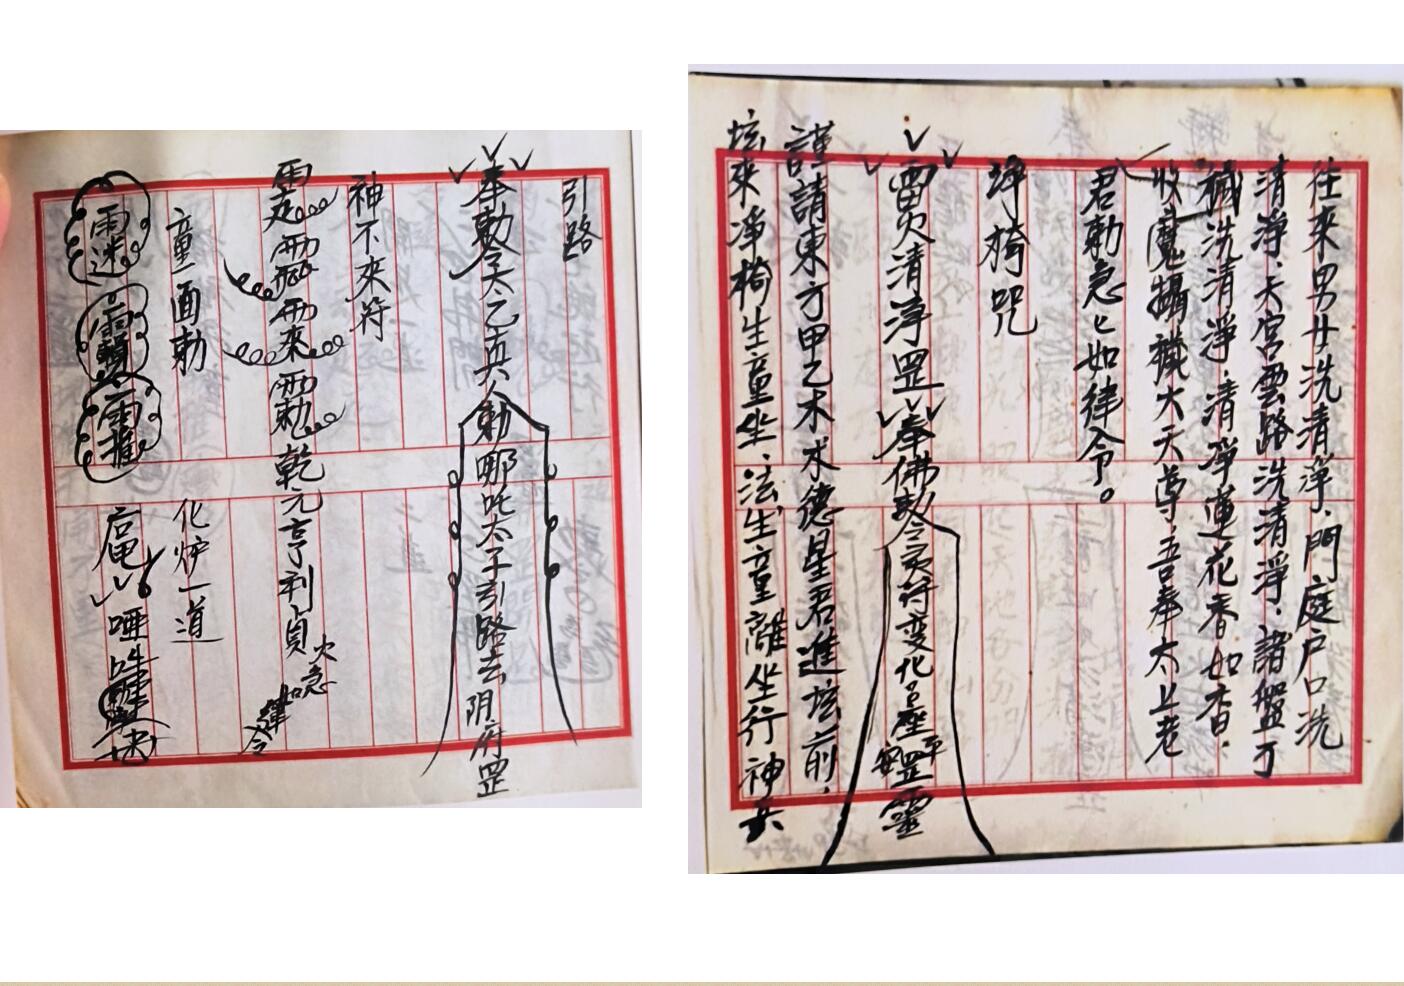 引路
奉勅令太乙真人勅哪吒太子引路去阴府罡
神不來符
乾元亨利貞火急如律令
童面勅
化炉一道
往來男女洗清淨、門庭户口洗
清淨、天宮雲路洗清淨、諸盤才
穢洗清淨、清淨蓮花香如香、
收魔攝穢大天尊、吾奉太上老
君勅急〻如律令。
淨椅咒
清淨罡奉佛勅令灵符变化 座罡靈
謹請東方甲乙木木德星君進坛前、
坛來淨椅生童坐、法生童離坐行神兵